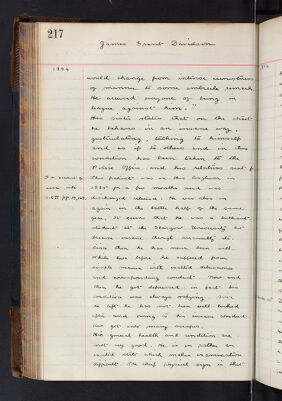 217
James Grant Davidson
1894
would change from intense earnestness
of manner to some imbecile remark.
He accused everyone of being in
league against him."
His sister states that on the street
he behaves in an insane way,
gesticulating, talking to himself
and as if to others and in this
condition has been taken to the
Police Office and his relatives sent for
This patient was in this Asylum in
1885 for a few months and was
discharged relieved. He was also in
again in the latter half of the same
year. It seems that he was a brilliant
student at the Glasgow University &
became insane through
Since then he has never been well.
While here before he suffered from
mania with excited delusions
and corresponding conduct. Now and
then he got depressed, in fact his
condition was always varying. Since
he left he has not been well looked
after and owing to his insane conduct
has got into many scrapes.
His general health and condition are
not very good. He is in rather an
excited state which makes examination
difficult. The chief physical sign is that